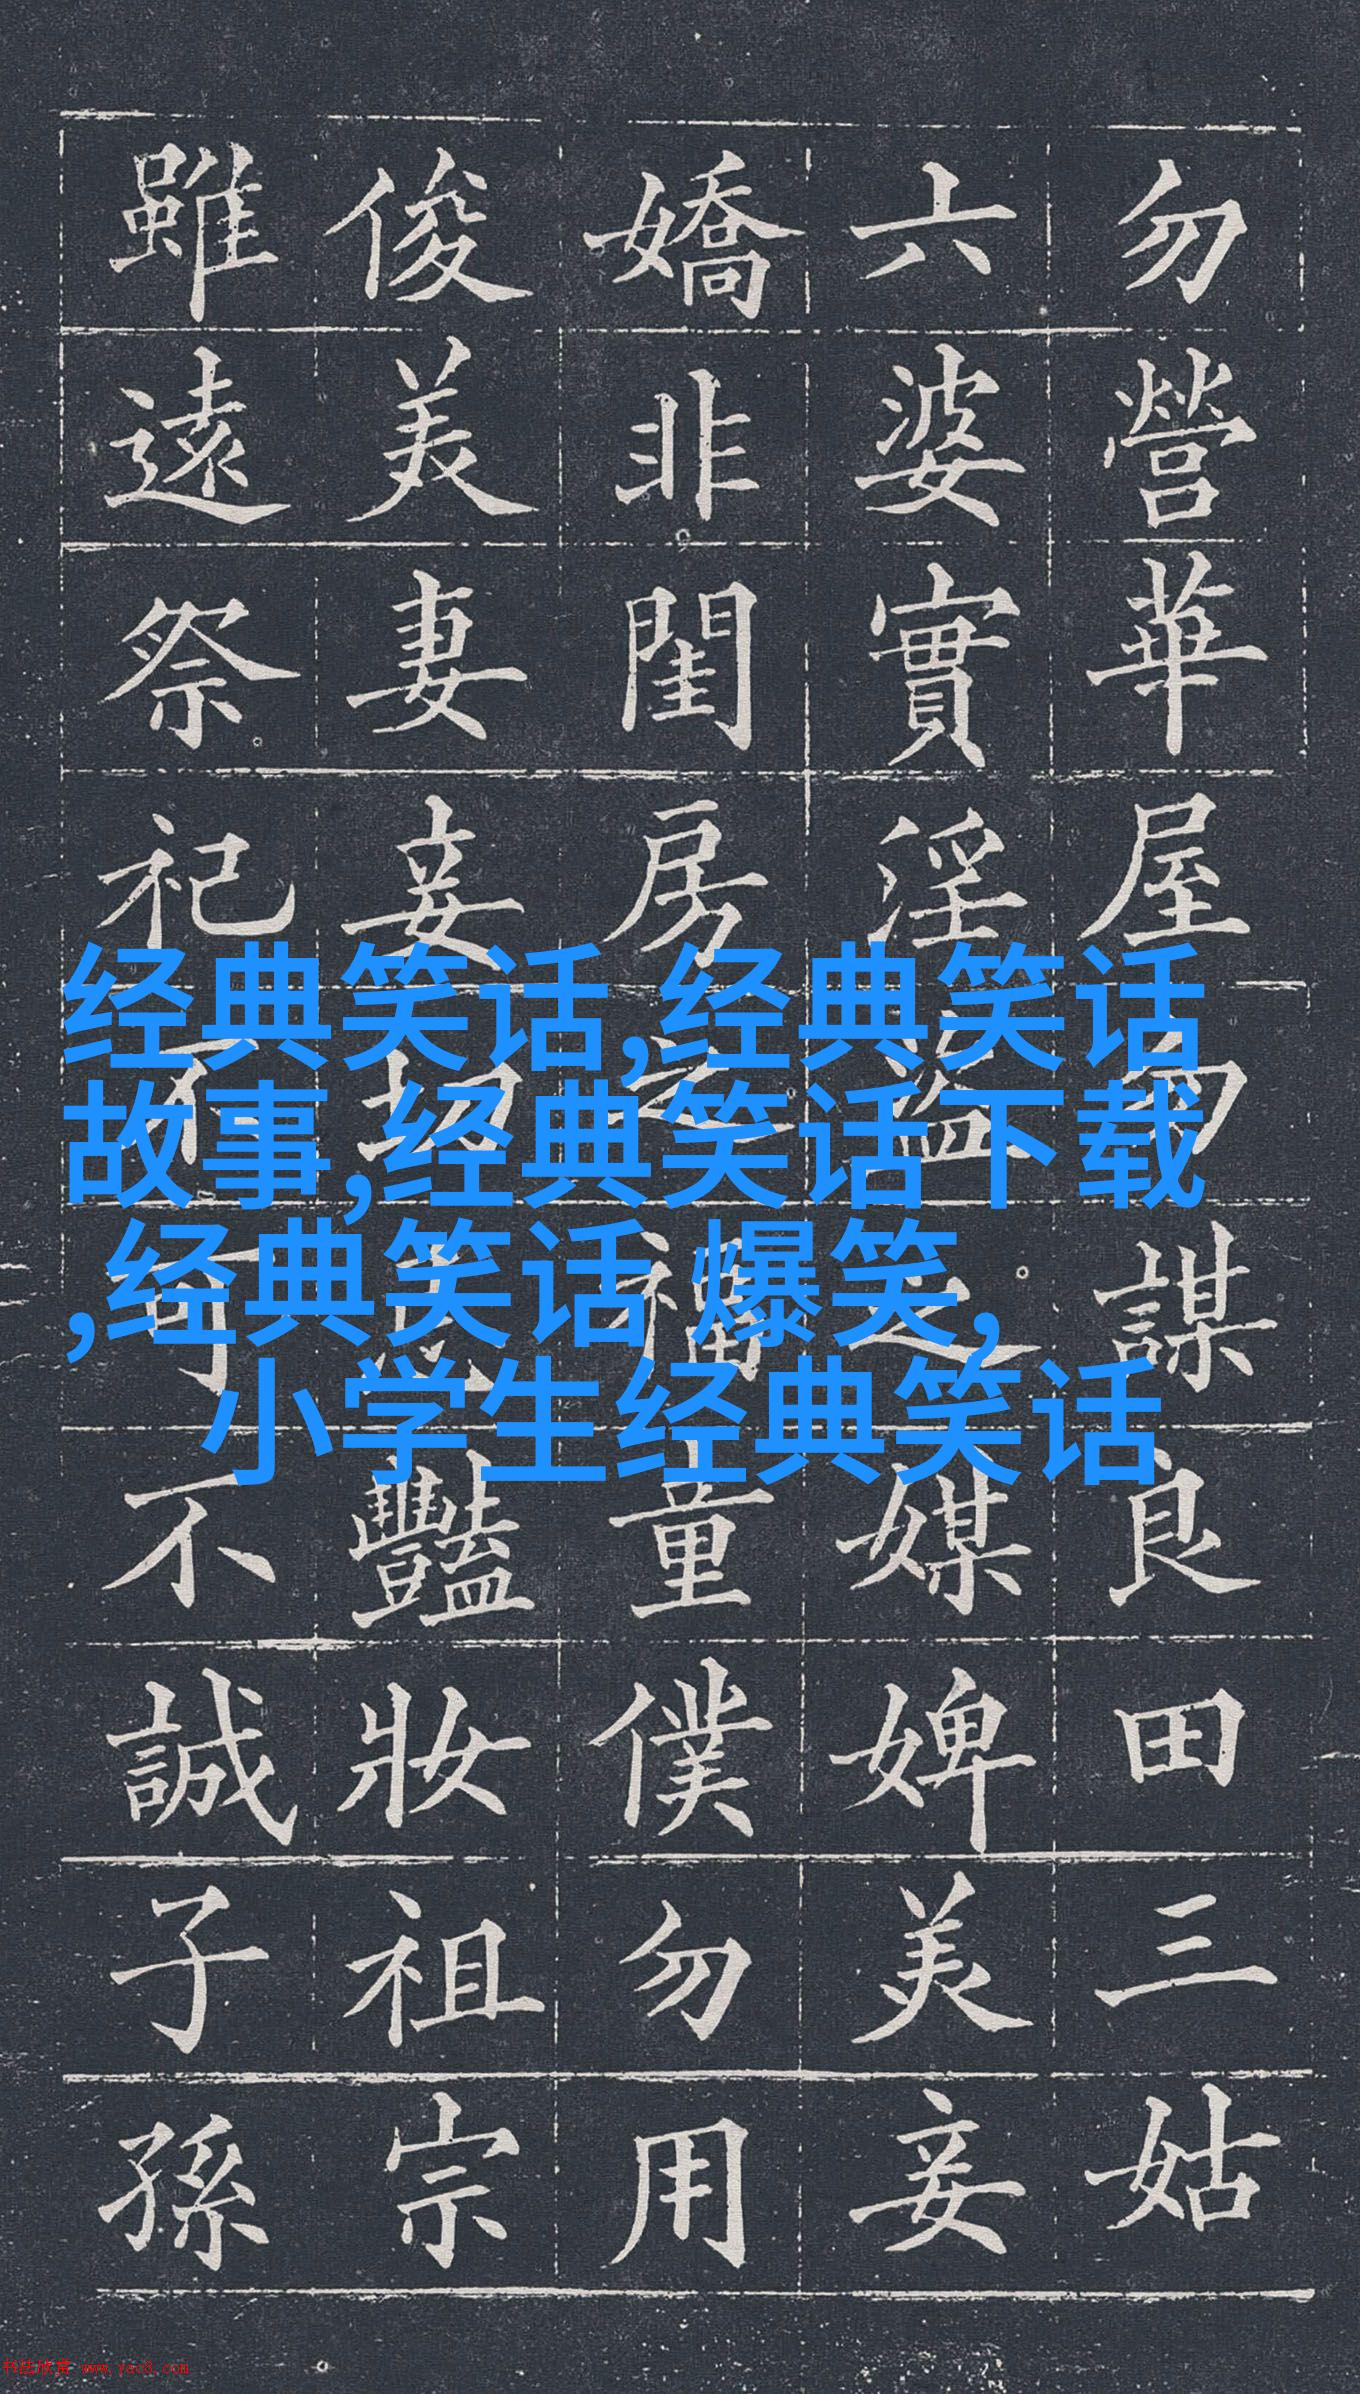 勿營華屋勿謀良田三姑
六婆實淫盜之媒婢美妾
嬌非閨房之福童僕勿用
俊美妻妾切忌豔妝祖宗
雖遠祭祀不可不誠子孫
经典笑话,经典笑话
故事,经典笑话下载
,经典笑话 爆笑,
小学生经典笑话
书法欣赏 www.yac8.com